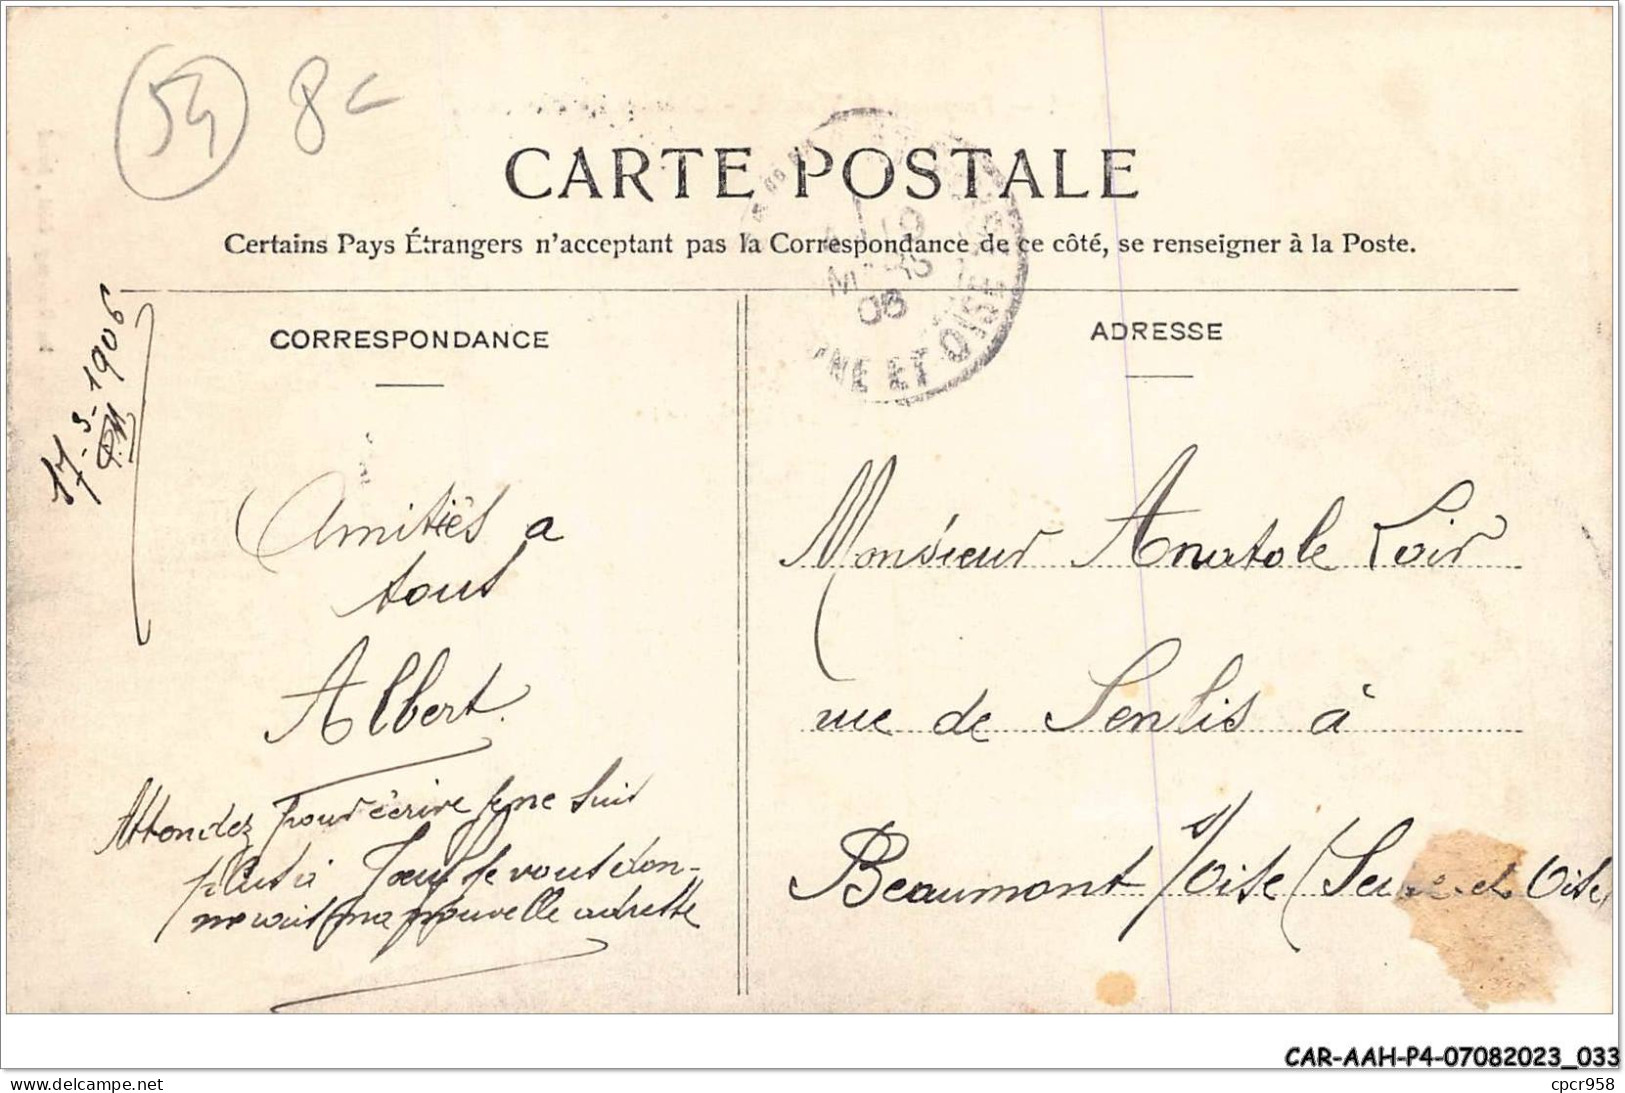 54 8c
CARTE POSTALE
Certains Pays Étrangers n'acceptant pas la Correspondance de ce côté, se renseigner à la Poste.
CORRESPONDANCE
17-3-1906
Amitiés a
tous
Albert
Attendez pour écrire je ne suis
plus à Joeuf je vous don-
nerais ma nouvelle adresse
10
06
NE ET OISE
ADRESSE
Monsieur Anatole Loir
rue de Senlis à
Beaumont s/Oise (Seine et Oise)
CAR-AAH-P4-07082023_033
www.delcampe.net
cpcr958